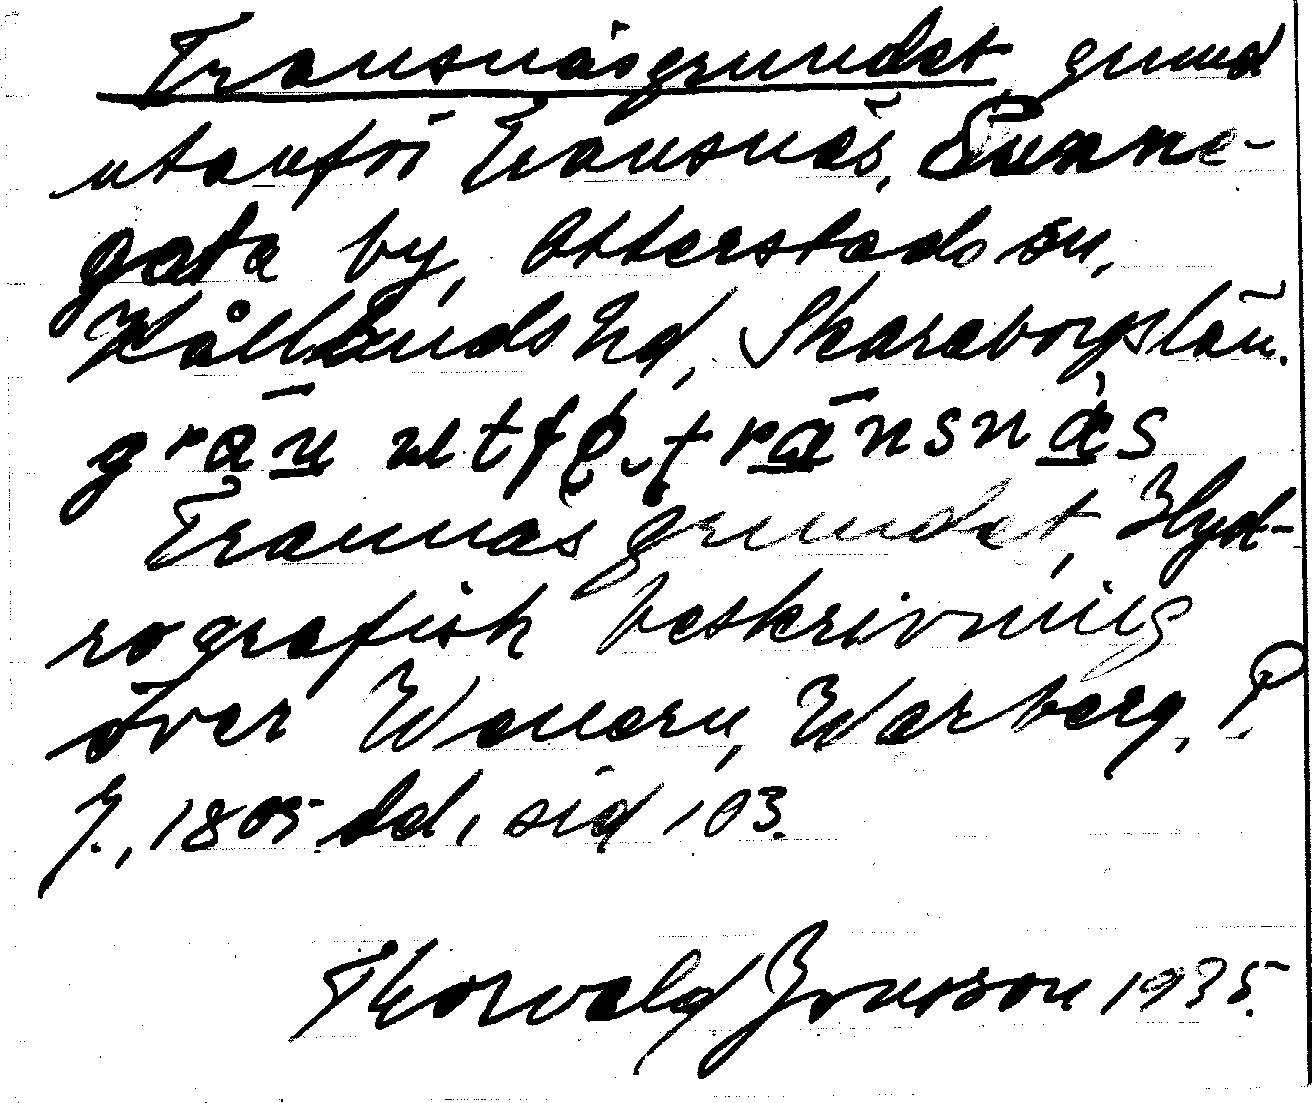 Transnäsgrundet, grund
utanför Transnäs, Sunne-
gata by, Otterstads sn,
Kållands hd, Skaraborgs län.
Trannäs grundet, Hyd-
rografisk beskrivning
över Wenern, Warberg, P.
J., 1805. dd, sid 103.
Thorvald Jonsson 1935.